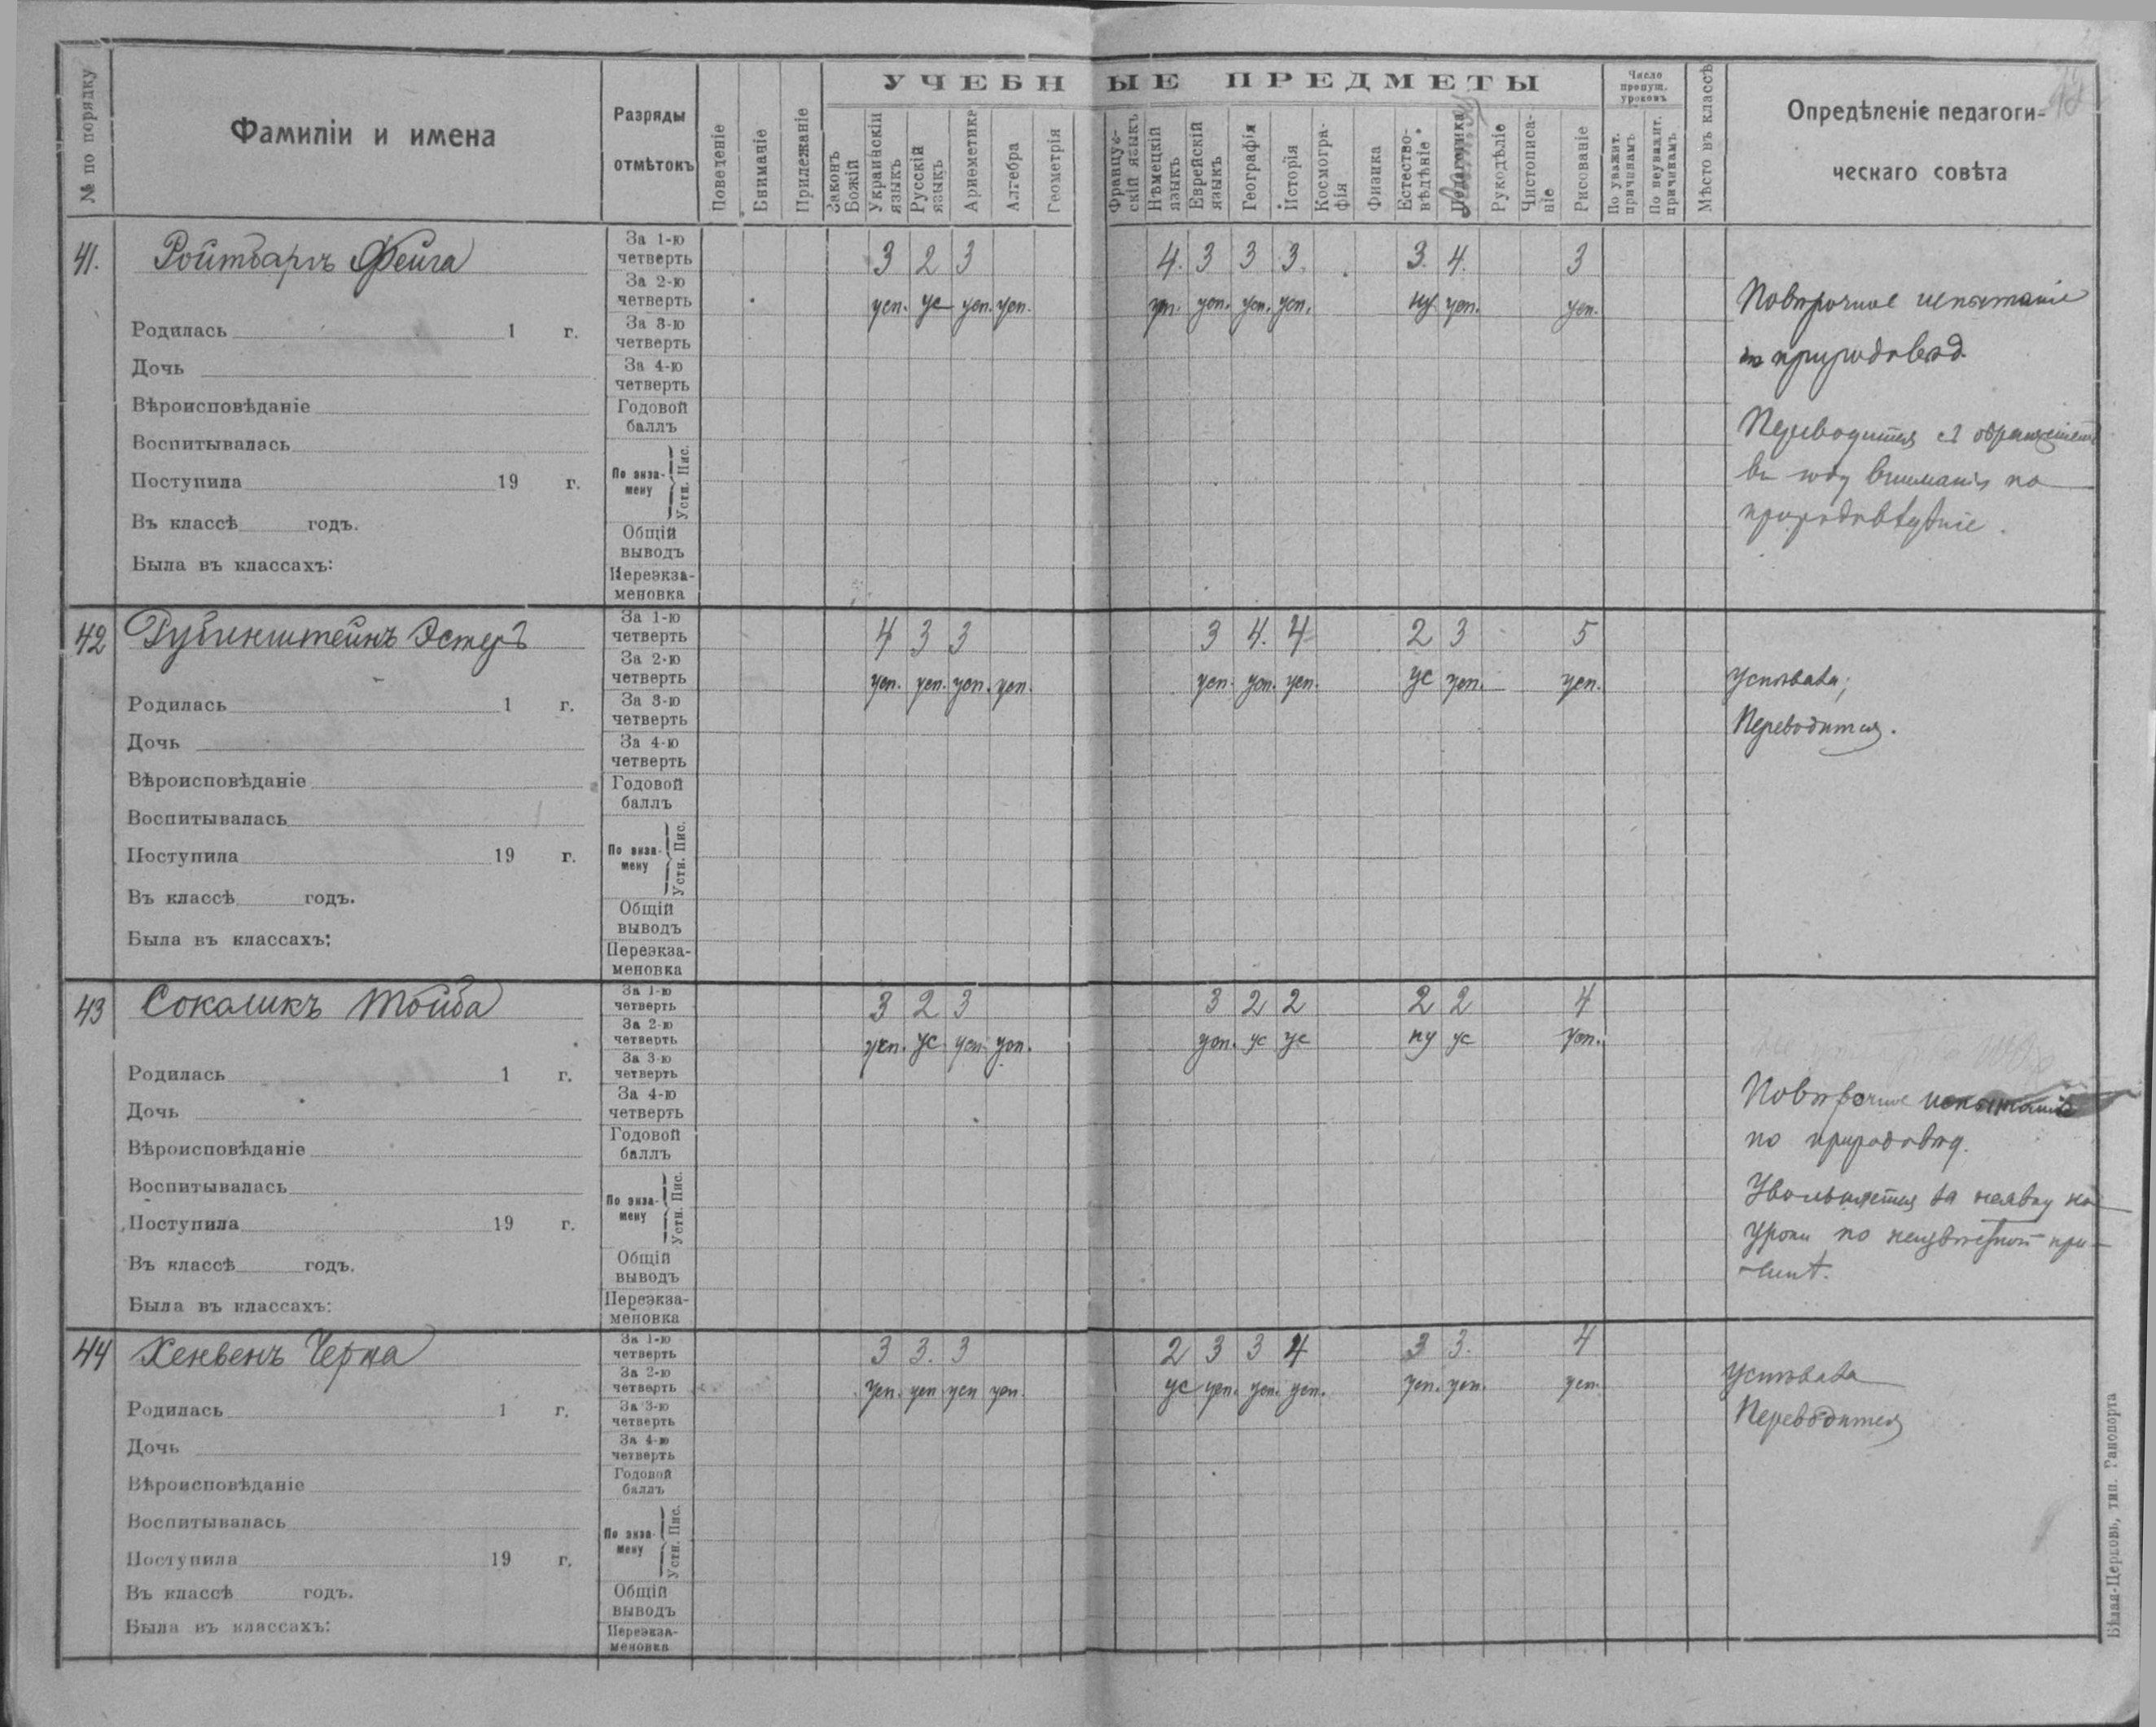 № по порядку
Фамиліи и имена
Разряды
отмѣтокъ
Поведеніе
Вниманіе
Прилежаніе
УЧЕБНЫЕ ПРЕДМЕТЫ
Законъ
Божій
Украинскій
языкъ
Русскій
языкъ
Ариѳметика
Алгебра
Геометрія
Француз-
скій языкъ
Нѣмецкій
языкъ
Еврейскій
языкъ
Географія
Исторія
Космогра-
фія
Физика
Естество-
вѣдѣніе
Педагогика
Рукодѣліе
Чистописа-
ніе
Рисованіе
Число
пропущ.
уроковъ
По уважит.
причинамъ
По неуважит.
причинамъ
Мѣсто въ классѣ
Опредѣленіе педагоги-
ческаго совѣта
41. Ройтбаргъ Фейга
За 1-ю
четверть
3 2 3 4. 3 3 3. 3. 4. 3
За 2-ю
четверть
усп. ус усп. усп. усп. усп. усп. усп. ну усп. усп.
Родилась 1 г.
За 3-ю
четверть
Дочь
За 4-ю
четверть
Вѣроисповѣданіе
Годовой
баллъ
Воспитывалась
Поступила 19 г.
По экза-
мену
Устн. Пис.
Въ классѣ годъ.
Общій
выводъ
Была въ классахъ:
Переэкза-
меновка
Повѣрочное испытаніе
по природовѣд.
Переводится съ обращеніемъ
вниманія по
природовѣдѣніе.
42 Рубинштейнъ Эстеръ
За 1-ю
четверть
4 3 3 3 4. 4 2 3 5
За 2-ю
четверть
усп. усп. усп. усп. усп. усп. усп. ус усп. усп.
Родилась 1 г.
За 3-ю
четверть
Дочь
За 4-ю
четверть
Вѣроисповѣданіе
Годовой
баллъ
Воспитывалась
Поступила 19 г.
По экза-
мену
Устн. Пис.
Въ классѣ годъ.
Общій
выводъ
Была въ классахъ:
Переэкза-
меновка
Успѣвала;
Переводится.
43 Сокаликъ Тойба
За 1-ю
четверть
3 2 3 3 2 2 2 2 4
За 2-ю
четверть
усп. ус усп. усп. усп. ус ус ну ус усп.
За 3-ю
четверть
Родилась 1 г.
За 4-ю
четверть
Дочь
Годовой
баллъ
Вѣроисповѣданіе
Воспитывалась
Поступила 19 г.
По экза-
мену
Устн. Пис.
Въ классѣ годъ.
Общій
выводъ
Была въ классахъ:
Переэкза-
меновка
Повѣрочное испытаніе
по природовѣд.
Увольняется за неявку на
уроки по неизвѣстной при-
чинѣ.
44 Хенвенъ Черна
За 1-ю
четверть
3 3. 3 2 3 3 4 3 3. 4
За 2-ю
четверть
усп. усп усп усп. ус усп. усп. усп. усп. усп. усп.
За 3-ю
четверть
Родилась 1 г.
Дочь
За 4-ю
четверть
Вѣроисповѣданіе
Годовой
баллъ
Воспитывалась
Поступила 19 г.
По экза-
мену
Устн. Пис.
Въ классѣ годъ.
Общій
выводъ
Была въ классахъ:
Переэкза-
меновка
Успѣвала
Переводится
Бѣлая-Церковь, тип. Рапопорта